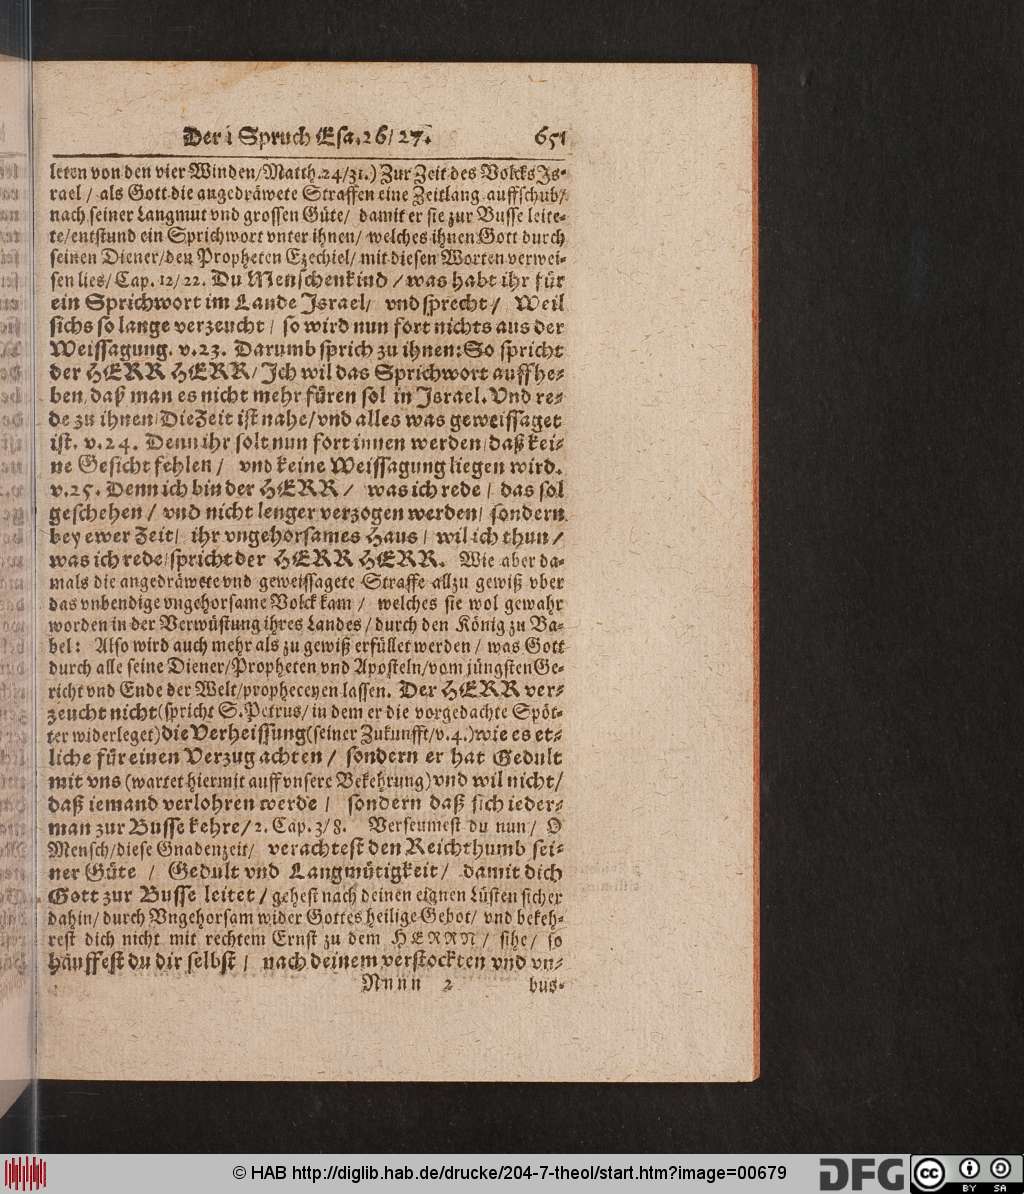 Der i Spruch Esa. 26/ 27. 651
leten von den vier Winden/Matth.24/31.) Zur Zeit des Volcks Is-
rael / als Gott die angedräwete Straffen eine Zeitlang auffschub/
nach seiner Langmut vnd grossen Güte/ damit er sie zur Busse leite-
te/entstund ein Sprichwort vnter ihnen/ welches ihnen Gott durch
seinen Diener/den Propheten Ezechiel/ mit diesen Worten verwei-
sen lies/ Cap. 12/ 22. Du Menschenkind / was habt ihr für
ein Sprichwort im Lande Israel/ vnd sprecht/ Weil
sichs so lange verzeucht / so wird nun fort nichts aus der
Weissagung. v.23. Darumb sprich zu ihnen: So spricht
der HERR HERR/ Ich wil das Sprichwort auffhe-
ben, daß man es nicht mehr füren sol in Israel. Vnd re-
de zu ihnen/ Die Zeit ist nahe/ vnd alles was geweissaget
ist. v.24. Denn ihr solt nun fort innen werden/ daß kei-
ne Gesicht fehlen / vnd keine Weissagung liegen wird.
v.25. Denn ich bin der HERR / was ich rede / das sol
geschehen / vnd nicht lenger verzogen werden/ sondern
bey ewer Zeit/ ihr vngehorsames Haus / wil ich thun /
was ich rede/ spricht der HERR HERR. Wie aber da-
mals die angedräwete vnd geweissagete Straffe allzu gewiß vber
das vnbendige vngehorsame Volck kam / welches sie wol gewahr
worden in der Verwüstung ihres Landes / durch den König zu Ba-
bel: Also wird auch mehr als zu gewiß erfüllet werden / was Gott
durch alle seine Diener/Propheten vnd Aposteln/vom jüngsten Ge-
richt vnd Ende der Welt/propheceyen lassen. Der HERR ver-
zeucht nicht (spricht S. Petrus/ in dem er die vorgedachte Spöt-
ter widerleget) die Verheissung (seiner Zukunfft/v.4.) wie es et-
liche für einen Verzug achten / sondern er hat Gedult
mit vns (wartet hiermit auff vnsere Bekehrung) vnd wil nicht/
daß iemand verlohren werde / sondern daß sich ieder-
man zur Busse kehre/ 2. Cap. 3/ 8. Verseumest du nun/ O
Mensch/diese Gnadenzeit/ verachtest den Reichthumb sei-
ner Güte / Gedult vnd Langmütigkeit/ damit dich
Gott zur Busse leitet / gehest nach deinen eignen Lüsten sicher
dahin/ durch Vngehorsam wider Gottes heilige Gebot/ vnd bekeh-
rest dich nicht mit rechtem Ernst zu dem HERRN / sihe/ so
häuffest du dir selbst / nach deinem verstockten vnd vn-
Nnnn 2 bus-
© HAB http://diglib.hab.de/drucke/204-7-theol/start.htm?image=00679
DFG
cc BY SA